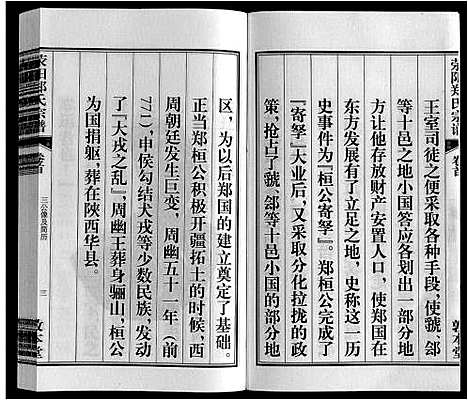 荥阳郑氏宗谱
卷首
敦本堂
王室司徒之便采取各种手段，使虢、郐
等十邑之地小国答应各划出一部分地
方让他存放财产安置人口，使郑国在
东方发展有了立足之地，史称这一历
史事件为『桓公寄孥』。郑桓公完成了
『寄孥』大业后，又采取分化拉拢的政
策，抢占了虢、郐等十邑小国的部分地
区，为以后郑国的建立奠定了基础。
正当郑桓公积极开疆拓土的时候，西
周朝廷发生巨变，周幽五十一年（前
771），申侯勾结犬戎等少数民族，发动
了『犬戎之乱』，周幽王葬身骊山，桓公
为国捐躯，葬在陕西华县。
荥阳郑氏宗谱
卷首
三公像及简历
三
敦本堂